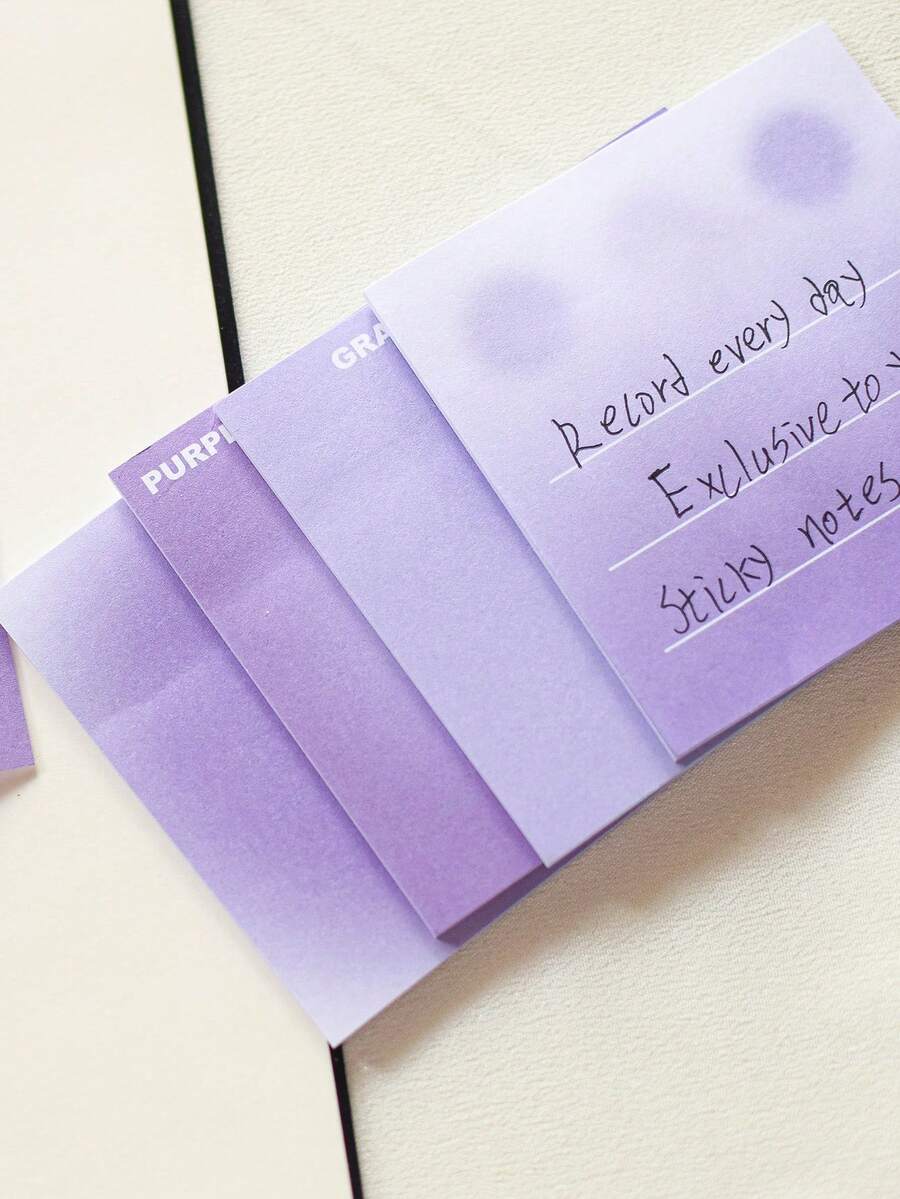 GRA
PURPL
Record every day
Exclusive to
Sticky notes